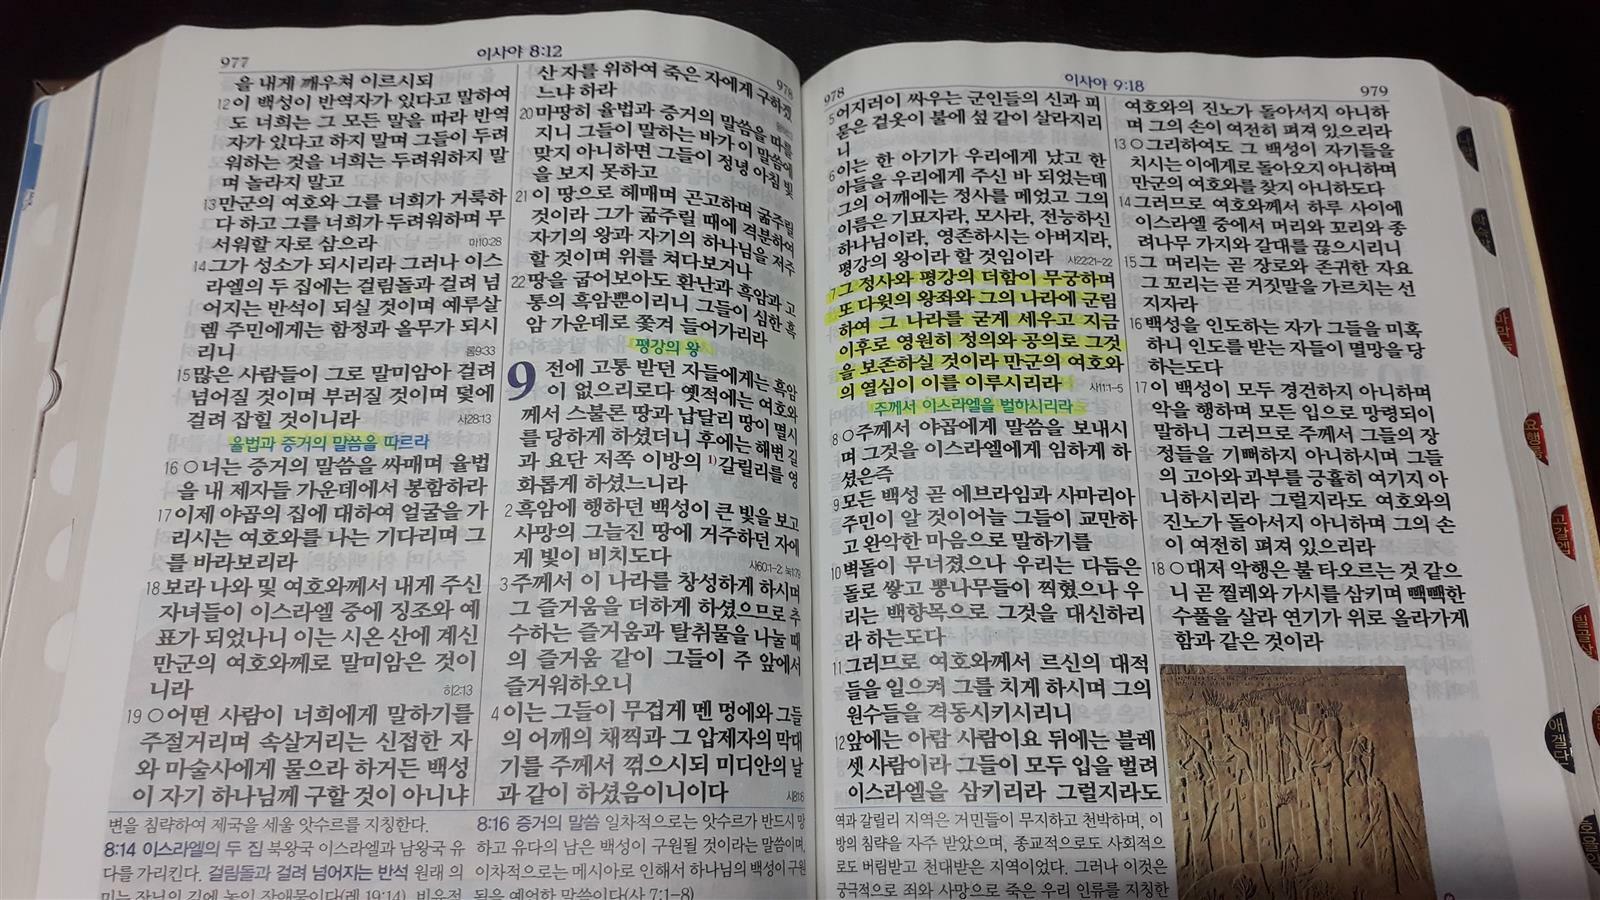 977
이사야 8:12
978
을 내게 깨우쳐 이르시되
12 이 백성이 반역자가 있다고 말하여
도 너희는 그 모든 말을 따라 반역
자가 있다고 하지 말며 그들이 두려
워하는 것을 너희는 두려워하지 말
며 놀라지 말고
13 만군의 여호와 그를 너희가 거룩하
다 하고 그를 너희가 두려워하며 무
서워할 자로 삼으라 마10:28
14 그가 성소가 되시리라 그러나 이스
라엘의 두 집에는 걸림돌과 걸려 넘
어지는 반석이 되실 것이며 예루살
렘 주민에게는 함정과 올무가 되시
리니 롬9:33
15 많은 사람들이 그로 말미암아 걸려
넘어질 것이며 부러질 것이며 덫에
걸려 잡힐 것이니라 사28:13
율법과 증거의 말씀을 따르라
16 ○너는 증거의 말씀을 싸매며 율법
을 내 제자들 가운데에서 봉함하라
17 이제 야곱의 집에 대하여 얼굴을 가
리시는 여호와를 나는 기다리며 그
를 바라보리라
18 보라 나와 및 여호와께서 내게 주신
자녀들이 이스라엘 중에 징조와 예
표가 되었나니 이는 시온 산에 계신
만군의 여호와께로 말미암은 것이
니라 히2:13
19 ○어떤 사람이 너희에게 말하기를
주절거리며 속살거리는 신접한 자
와 마술사에게 물으라 하거든 백성
이 자기 하나님께 구할 것이 아니냐
산 자를 위하여 죽은 자에게 구하겠
느냐 하라
20 마땅히 율법과 증거의 말씀을 따를
지니 그들이 말하는 바가 이 말씀에
맞지 아니하면 그들이 정녕 아침 빛
을 보지 못하고
21 이 땅으로 헤매며 곤고하며 굶주릴
것이라 그가 굶주릴 때에 격분하여
자기의 왕과 자기의 하나님을 저주
할 것이며 위를 쳐다보거나
22 땅을 굽어보아도 환난과 흑암과 고
통의 흑암뿐이리니 그들이 심한 흑
암 가운데로 쫓겨 들어가리라
평강의 왕
9 전에 고통 받던 자들에게는 흑암
이 없으리로다 옛적에는 여호와
께서 스불론 땅과 납달리 땅이 멸시
를 당하게 하셨더니 후에는 해변 길
과 요단 저쪽 이방의 1)갈릴리를 영
화롭게 하셨느니라
2 흑암에 행하던 백성이 큰 빛을 보고
사망의 그늘진 땅에 거주하던 자에
게 빛이 비치도다 사60:1-2; 눅1:79
3 주께서 이 나라를 창성하게 하시며
그 즐거움을 더하게 하셨으므로 추
수하는 즐거움과 탈취물을 나눌 때
의 즐거움 같이 그들이 주 앞에서
즐거워하오니
4 이는 그들이 무겁게 멘 멍에와 그들
의 어깨의 채찍과 그 압제자의 막대
기를 주께서 꺾으시되 미디안의 날
과 같이 하셨음이니이다
변을 침략하여 제국을 세울 앗수르를 지칭한다.
8:14 이스라엘의 두 집 북왕국 이스라엘과 남왕국 유
다를 가리킨다. 걸림돌과 걸려 넘어지는 반석 원래 의
8:16 증거의 말씀 일차적으로는 앗수르가 반드시 망
하고 유다의 남은 백성이 구원될 것이라는 말씀이며,
이차적으로는 메시아로 인해서 하나님의 백성이 구원
됨을 예언한 말씀이다(사 7:1-8)
978
이사야 9:18
979
5 어지러이 싸우는 군인들의 신과 피
묻은 겉옷이 불에 섶 같이 살라지리
니
6 이는 한 아기가 우리에게 났고 한
아들을 우리에게 주신 바 되었는데
그의 어깨에는 정사를 메었고 그의
이름은 기묘자라, 모사라, 전능하신
하나님이라, 영존하시는 아버지라,
평강의 왕이라 할 것임이라 사22:21-22
7 그 정사와 평강의 더함이 무궁하며
또 다윗의 왕좌와 그의 나라에 군림
하여 그 나라를 굳게 세우고 지금
이후로 영원히 정의와 공의로 그것
을 보존하실 것이라 만군의 여호와
의 열심이 이를 이루시리라 사11:1-5
주께서 이스라엘을 벌하시리라
8 ○주께서 야곱에게 말씀을 보내시
며 그것을 이스라엘에게 임하게 하
셨은즉
9 모든 백성 곧 에브라임과 사마리아
주민이 알 것이어늘 그들이 교만하
고 완악한 마음으로 말하기를
10 벽돌이 무너졌으나 우리는 다듬은
돌로 쌓고 뽕나무들이 찍혔으나 우
리는 백향목으로 그것을 대신하리
라 하는도다
11 그러므로 여호와께서 르신의 대적
들을 일으켜 그를 치게 하시며 그의
원수들을 격동시키시리니
12 앞에는 아람 사람이요 뒤에는 블레
셋 사람이라 그들이 모두 입을 벌려
이스라엘을 삼키리라 그럴지라도
여호와의 진노가 돌아서지 아니하
며 그의 손이 여전히 펴져 있으리라
13 ○그리하여도 그 백성이 자기들을
치시는 이에게로 돌아오지 아니하며
만군의 여호와를 찾지 아니하도다
14 그러므로 여호와께서 하루 사이에
이스라엘 중에서 머리와 꼬리와 종
려나무 가지와 갈대를 끊으시리니
15 그 머리는 곧 장로와 존귀한 자요
그 꼬리는 곧 거짓말을 가르치는 선
지자라
16 백성을 인도하는 자가 그들을 미혹
하니 인도를 받는 자들이 멸망을 당
하는도다
17 이 백성이 모두 경건하지 아니하며
악을 행하며 모든 입으로 망령되이
말하니 그러므로 주께서 그들의 장
정들을 기뻐하지 아니하시며 그들
의 고아와 과부를 긍휼히 여기지 아
니하시리라 그럴지라도 여호와의
진노가 돌아서지 아니하며 그의 손
이 여전히 펴져 있으리라
18 ○대저 악행은 불 타오르는 것 같으
니 곧 찔레와 가시를 삼키며 빽빽한
수풀을 살라 연기가 위로 올라가게
함과 같은 것이라
역과 갈릴리 지역은 거민들이 무지하고 천박하며, 이
방의 침략을 자주 받았으며, 종교적으로도 사회적으
로도 버림받고 천대받은 지역이었다. 그러나 이것은
궁극적으로 죄와 사망으로 죽은 우리 인류를 지칭한
마막눅
요행롬
고갈엡
빌골살
애겔단